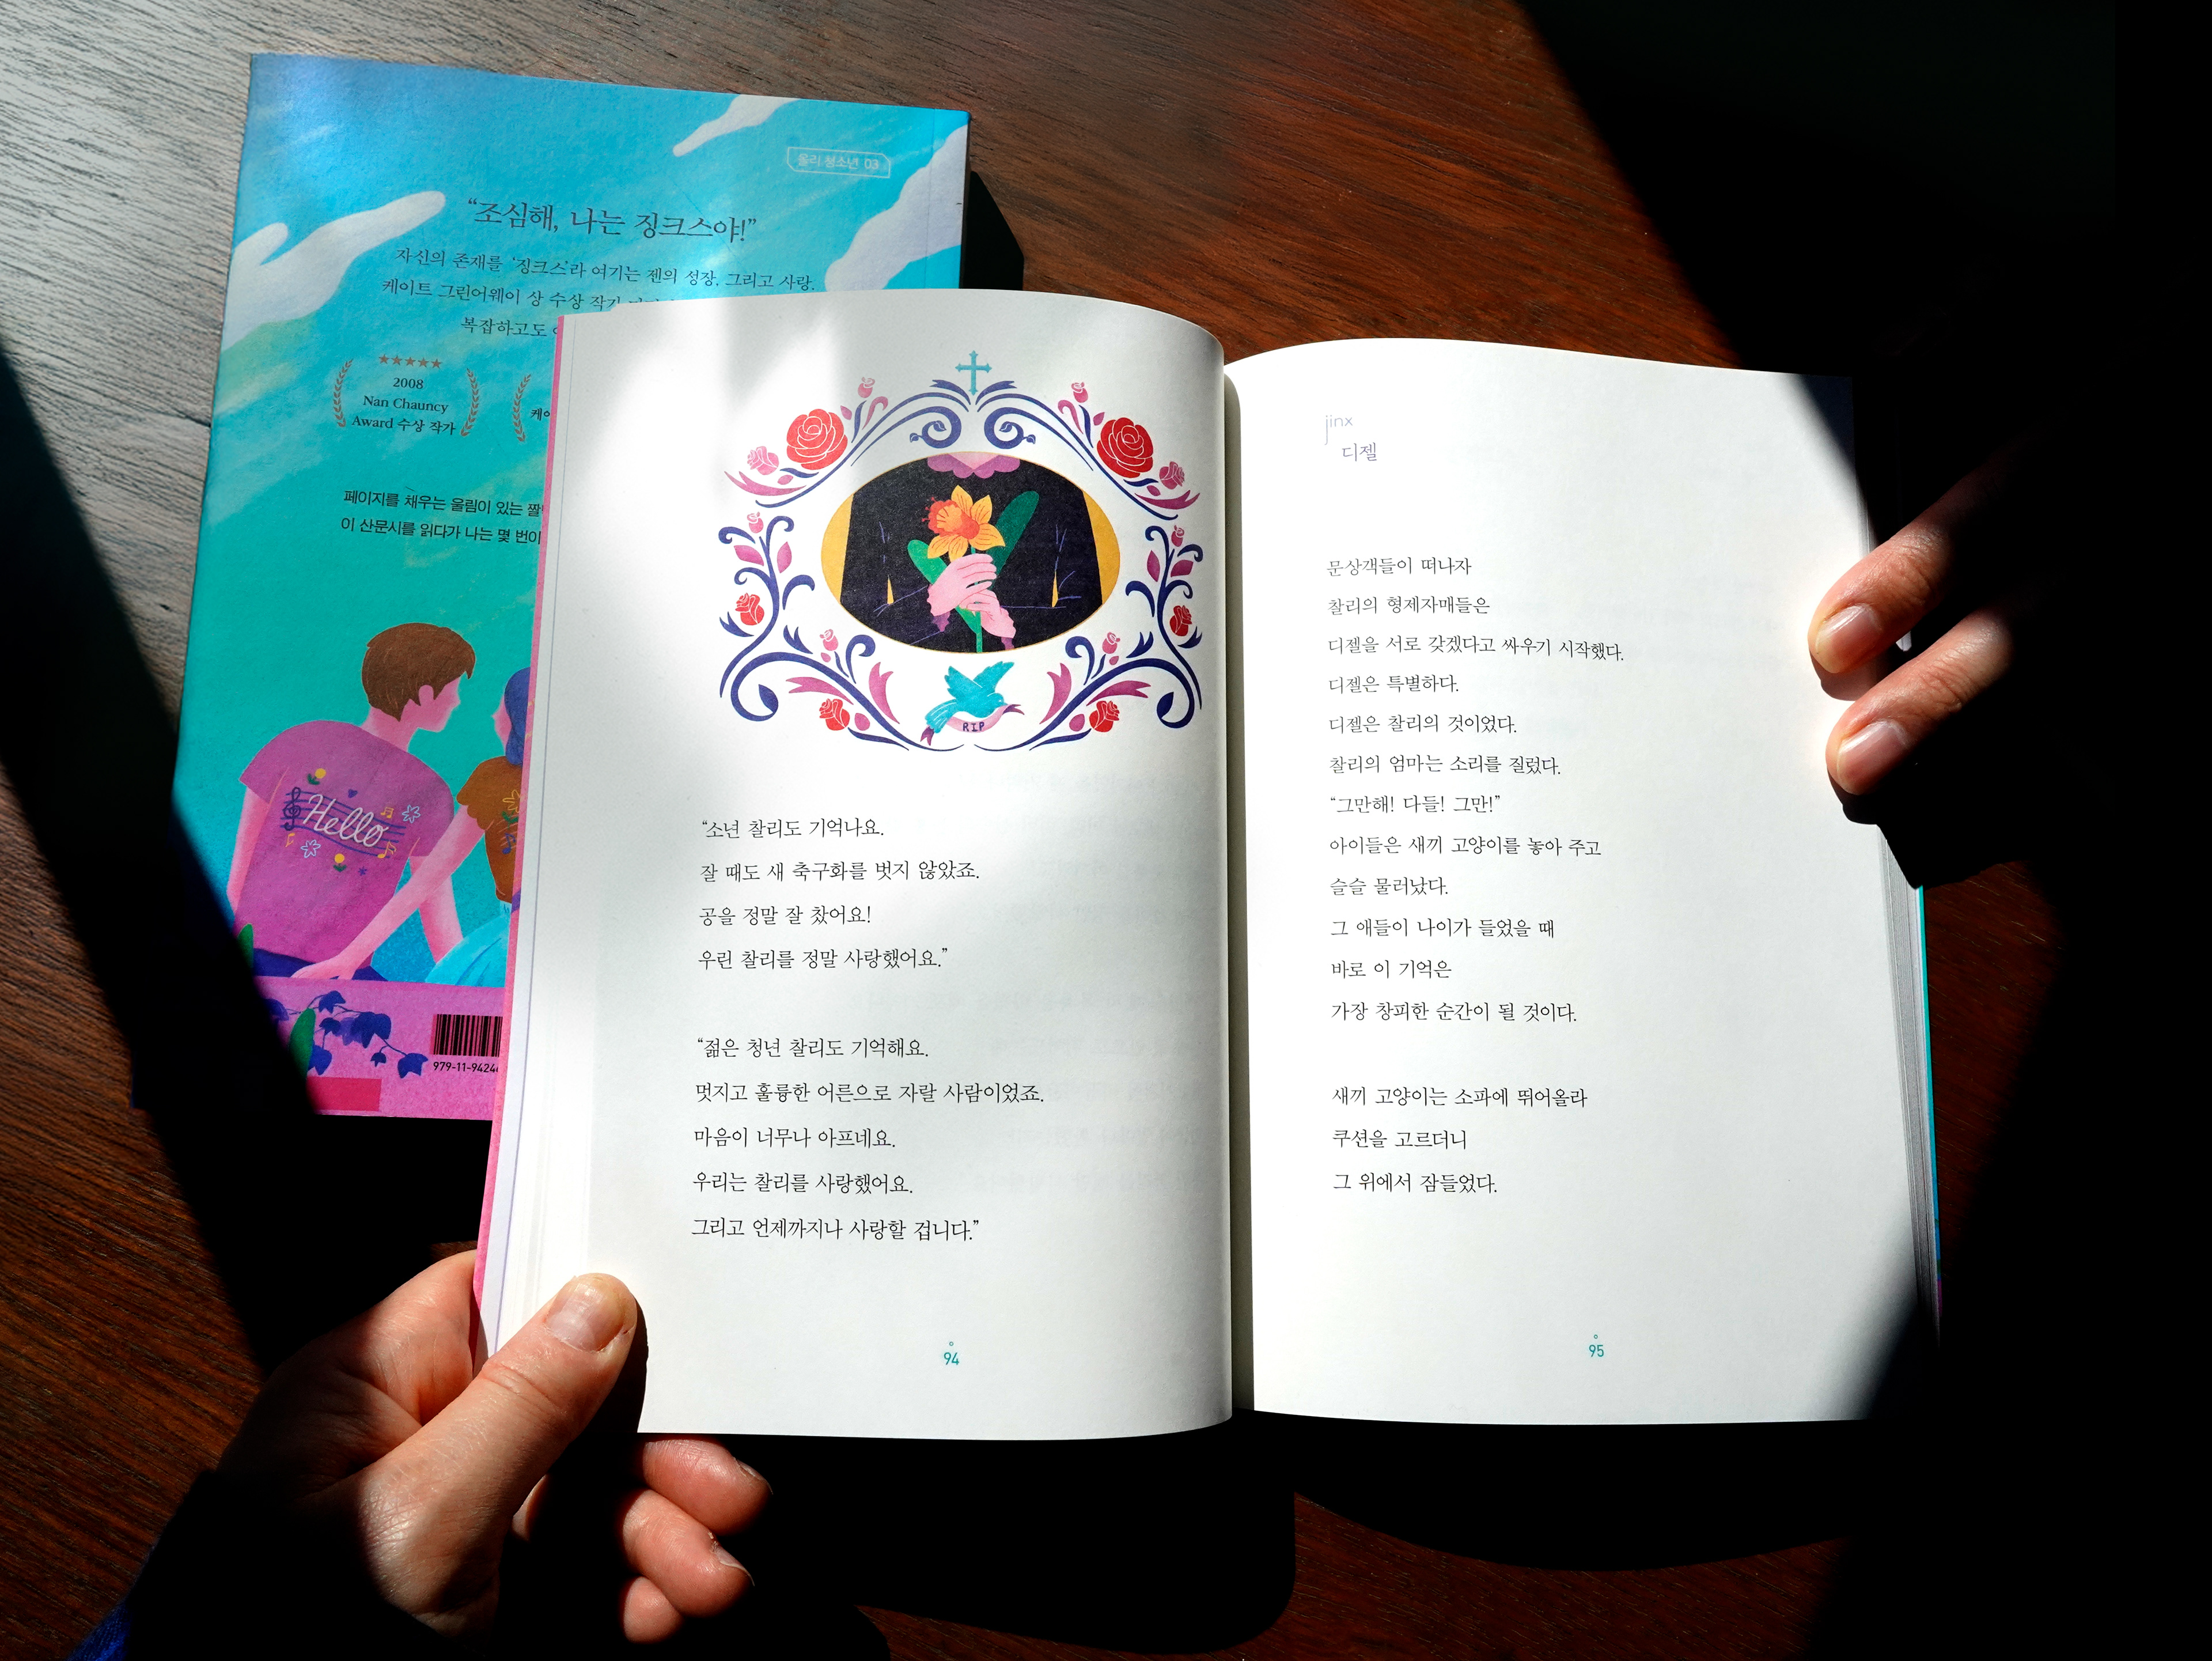 올리 청소년 03
“조심해, 나는 징크스야!”
자신의 존재를 ‘징크스’라 여기는 젠의 성장. 그리고 사랑.
케이트 그린어웨이 상 수상 작가
복잡하고도
★★★★★
2008
Nan Chauncy
Award 수상 작가
페이지를 채우는 울림이 있는
이 산문시를 읽다가 나는 몇 번이
Hello
979-11-9424
RIP
“소년 찰리도 기억나요.
잘 때도 새 축구화를 벗지 않았죠.
공을 정말 잘 찼어요!
우린 찰리를 정말 사랑했어요.”
“젊은 청년 찰리도 기억해요.
멋지고 훌륭한 어른으로 자랄 사람이었죠.
마음이 너무나 아프네요.
우리는 찰리를 사랑했어요.
그리고 언제까지나 사랑할 겁니다.”
94
jinx
디젤
문상객들이 떠나자
찰리의 형제자매들은
디젤을 서로 갖겠다고 싸우기 시작했다.
디젤은 특별하다.
디젤은 찰리의 것이었다.
찰리의 엄마는 소리를 질렀다.
“그만해! 다들! 그만!”
아이들은 새끼 고양이를 놓아 주고
슬슬 물러났다.
그 애들이 나이가 들었을 때
바로 이 기억은
가장 창피한 순간이 될 것이다.
새끼 고양이는 소파에 뛰어올라
쿠션을 고르더니
그 위에서 잠들었다.
95